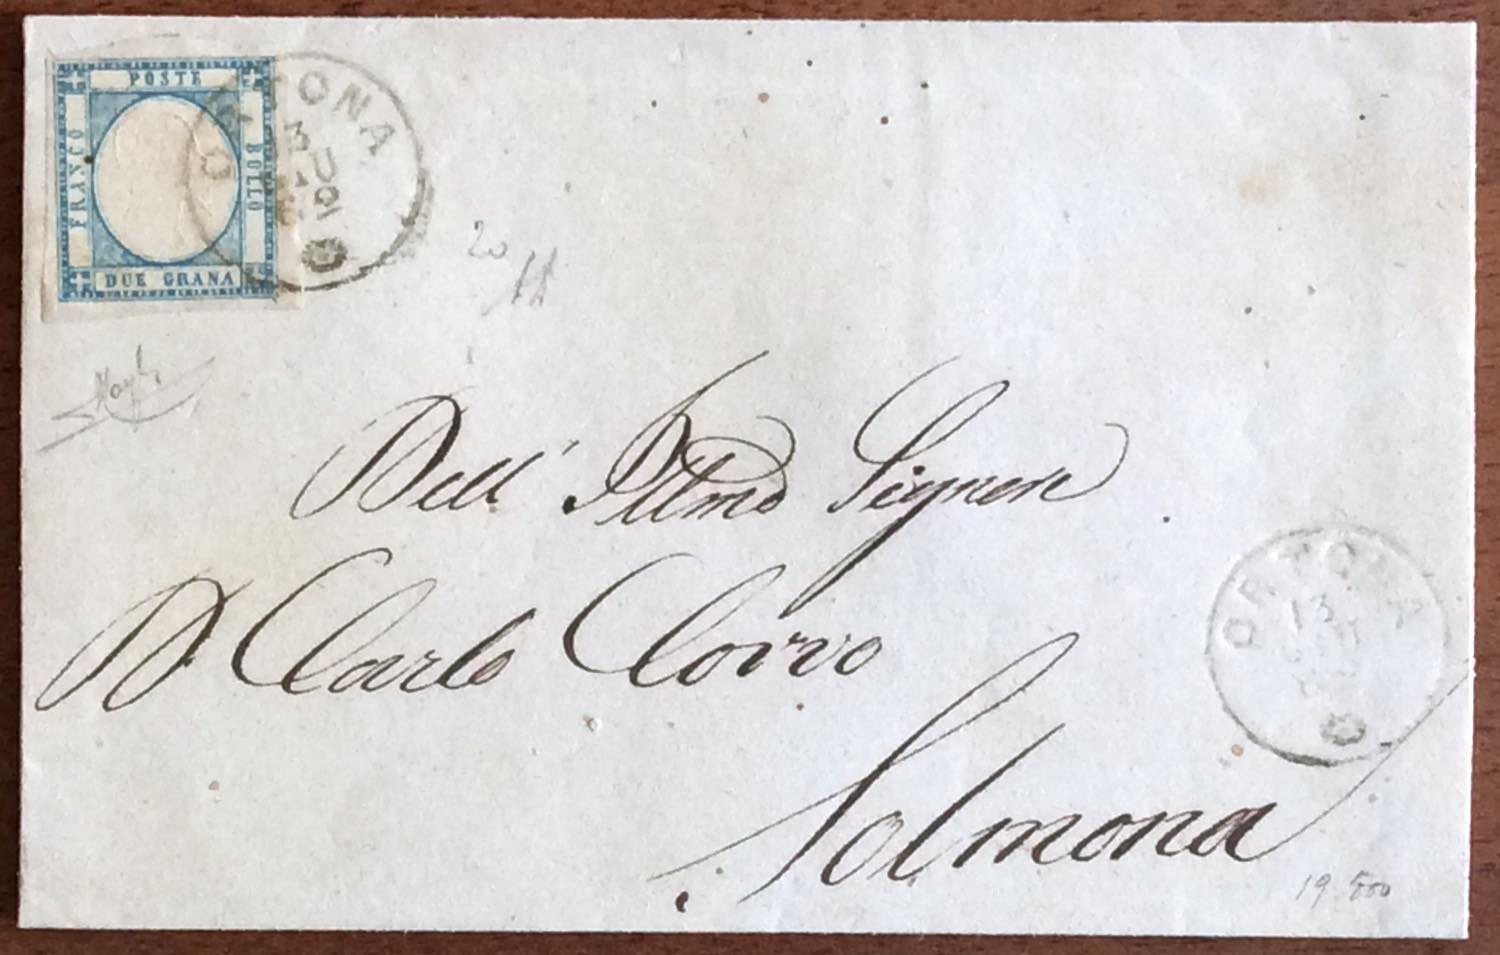 POSTE
FRANCO
BOLLO
DUE GRANA
ORTONA
20
Dell' Illmo Signore
D. Carlo Corvo
Solmona
ORTONA
13
19.500